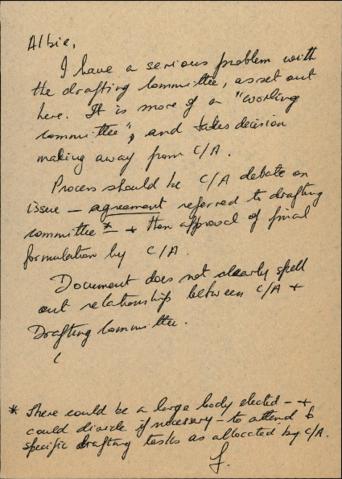 Albie,
I have a serious problem with
the drafting committee, as set out
here. It is more of a "working
committee", and takes decision
making away from C/A.
Process should be C/A debate on
issue — agreement referred to drafting
committee * + then approval of final
formulation by C/A.
Document does not clearly spell
out relationship between C/A +
Drafting Committee.
(
* There could be a large body elected — +
could divide if necessary — to attend to
specific drafting tasks as allocated by C/A.
F.